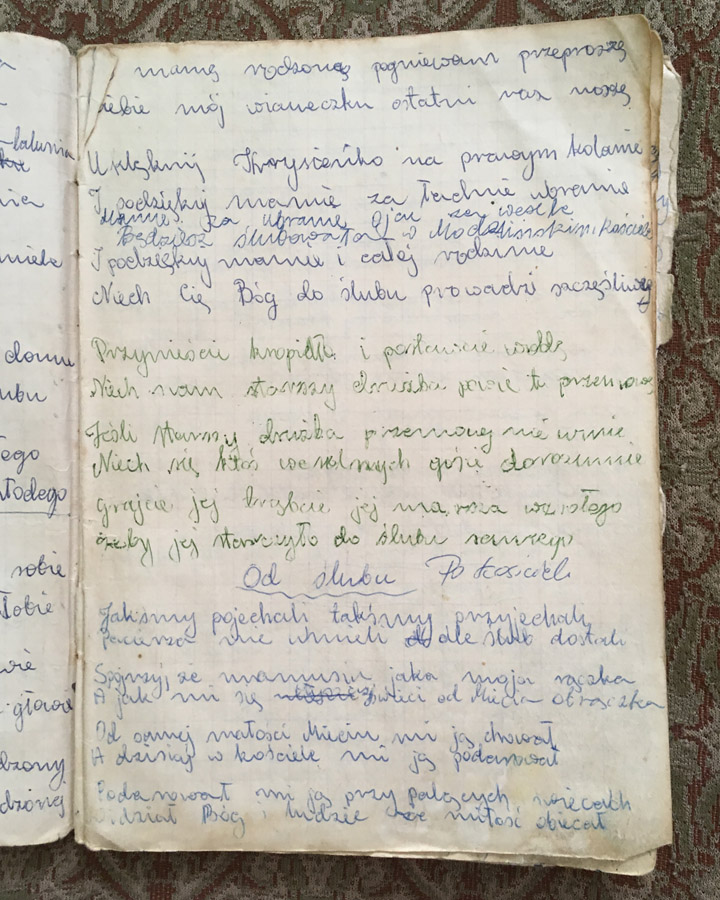 mamę rodzoną pogniewam przeproszę
ciebie mój wianeczku ostatni raz noszę
Uklęknij Krysieńko na prawym kolanie
I podziękuj mamie za ładnie ubranie
Mamie za ubranie, Ojcu za wesele
Będziesz ślubowała w Modlińskim kościele
I podziękuj mamie i całej rodzinie
Niech Cię Bóg do ślubu prowadzi szczęśliwie
Przynieście kropidło i postawcie wodę
Niech nam starszy drużba powie tu przemowę
Jeśli starszy drużba przemowy nie umie
Niech się ktoś weselnych gości dorozumie
Grajcie jej grajcie jej marsza wzniosłego
żeby jej starczyło do ślubu samego
Od ślubu Po kościele
Jakśmy pojechali takśmy przyjechali
Pacierza nie umieli ale ślub dostali
Spójrzyj że mamusiu jaka moja rączka
A jak mi się świeci od Miecia obrączka
Od samej małości Mieciu mi ją chował
A dzisiaj w kościele mi ją podarował
Podarował mi ją przy palących świecach
Widział Bóg i ludzie że miłość obiecał
domu
łodego
sobie
Tobie
głowie